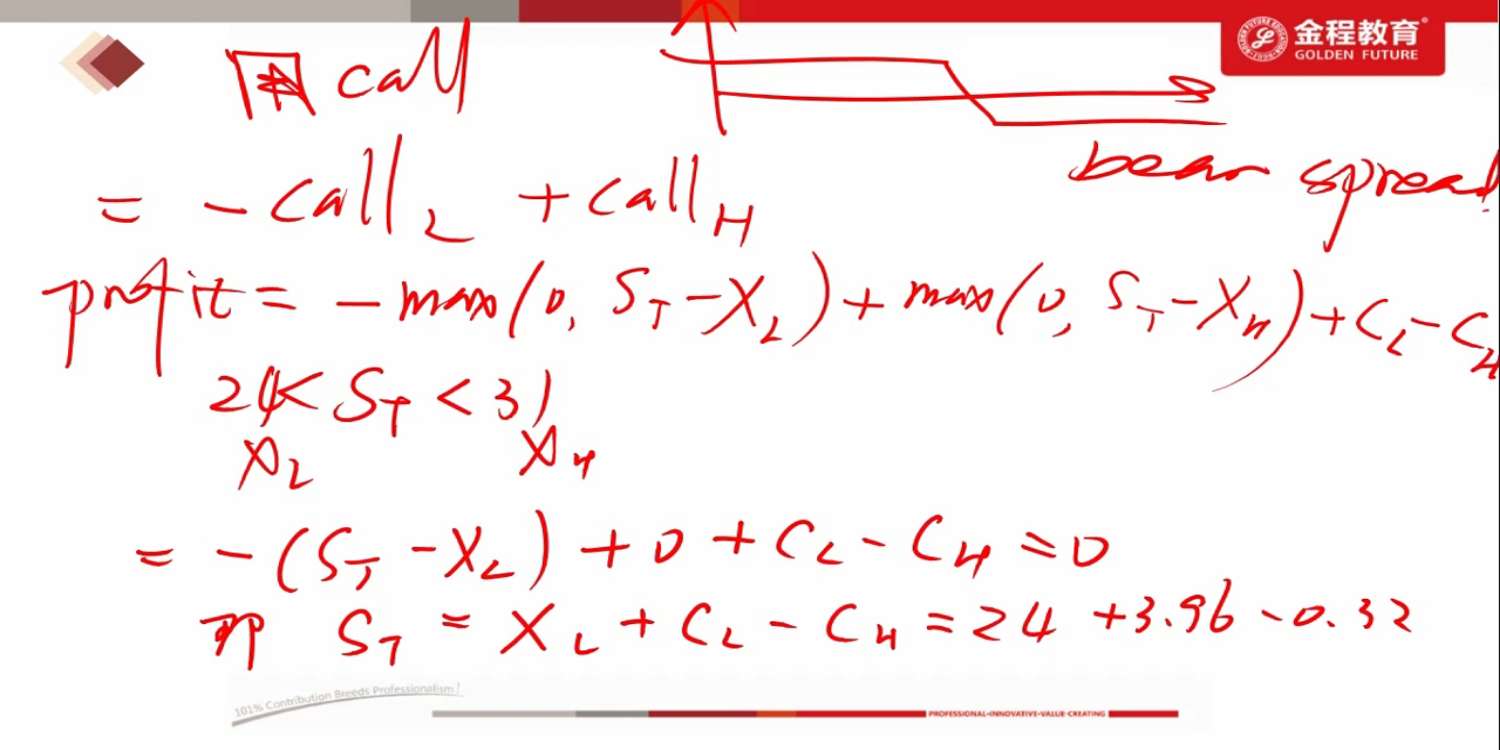 金程教育
GOLDEN FUTURE
用 call
bear spread
= - call_L + call_H
profit = - max(0, S_T - X_L) + max(0, S_T - X_H) + C_L - C_H
24 < S_T < 31
X_L X_H
= - (S_T - X_L) + 0 + C_L - C_H = 0
即 S_T = X_L + C_L - C_H = 24 + 3.96 - 0.32
101% Contribution Breeds Professionalism!
PROFESSIONAL·INNOVATIVE·VALUE-CREATING